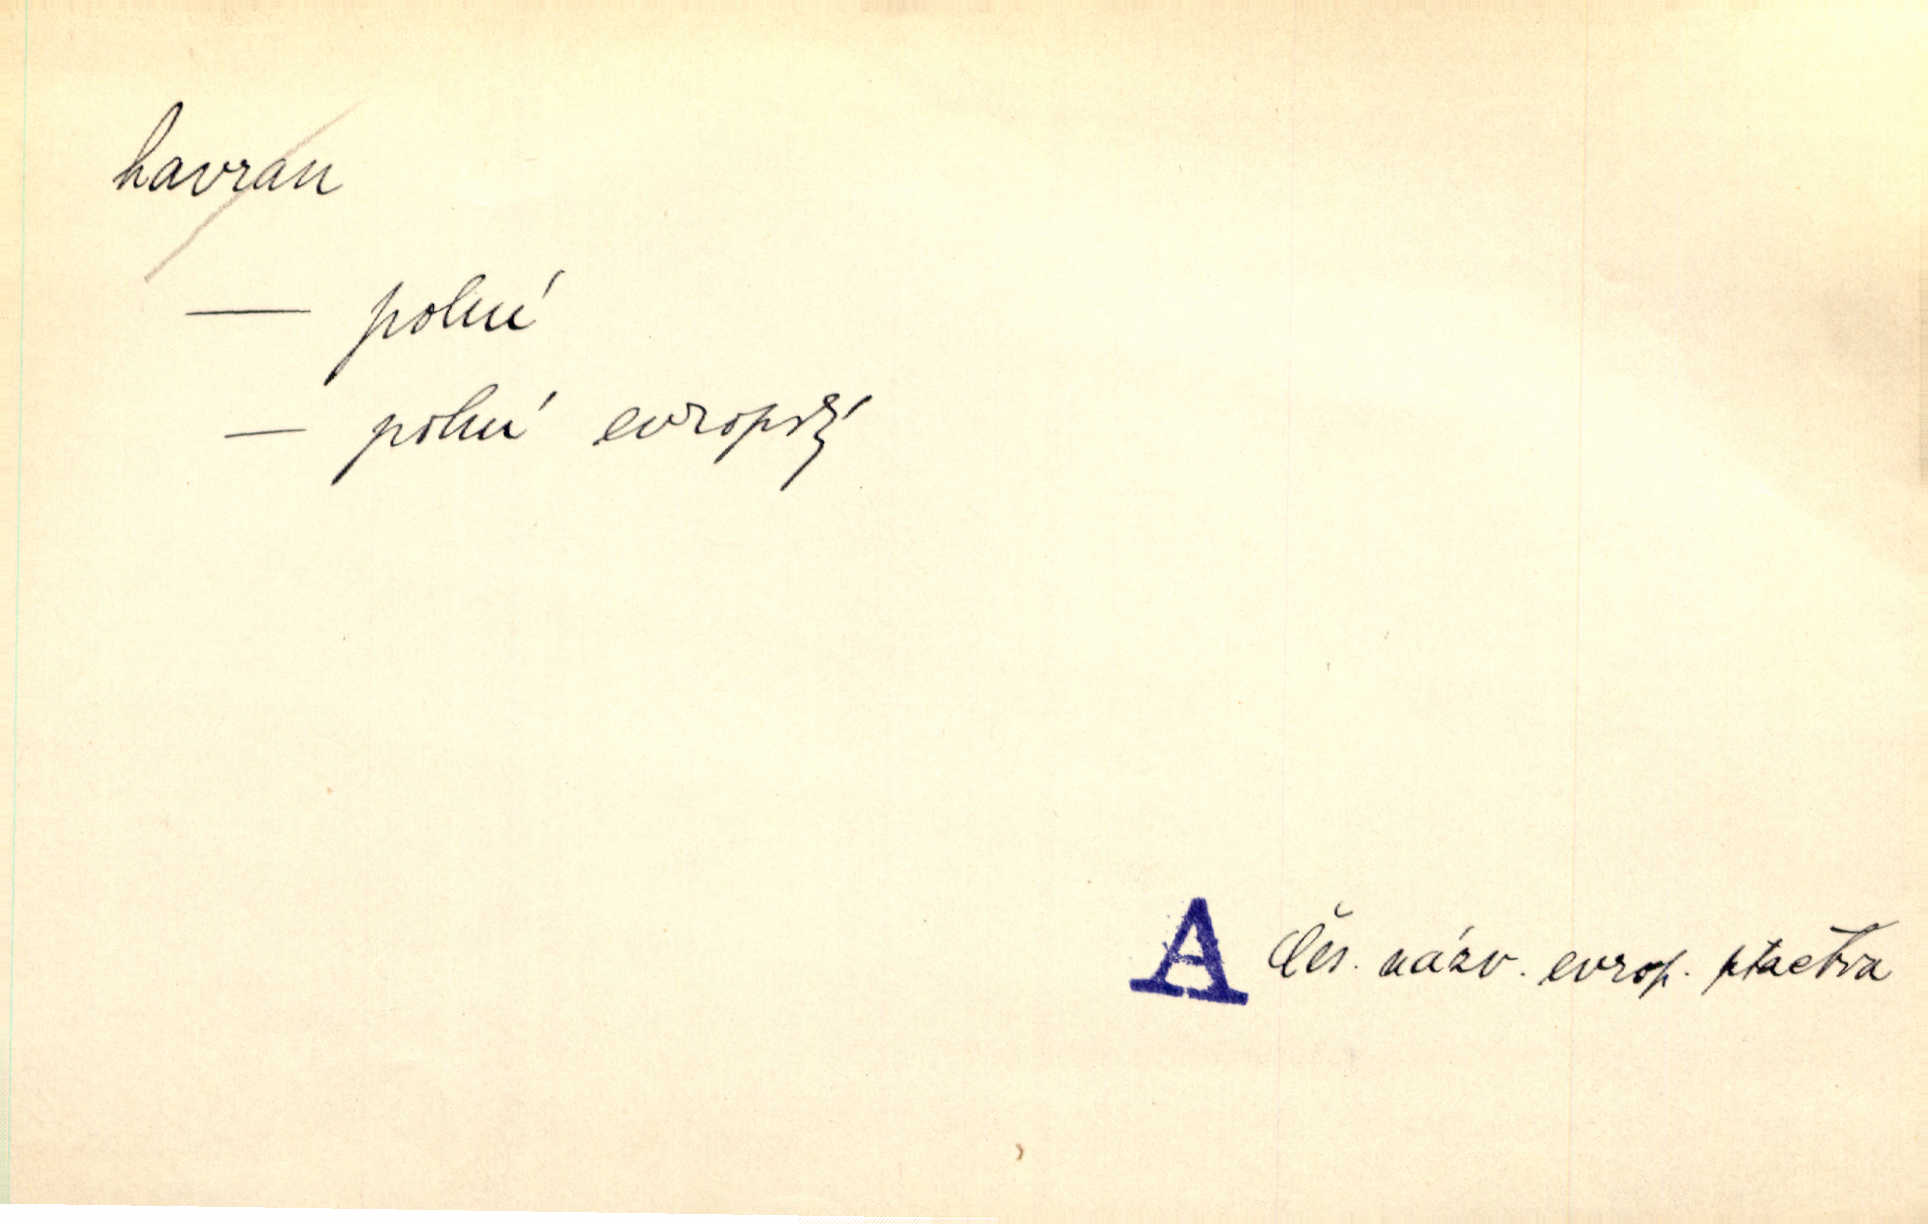 havran
— polní
— polní evropský
A Čes. názv. evrop. ptactva